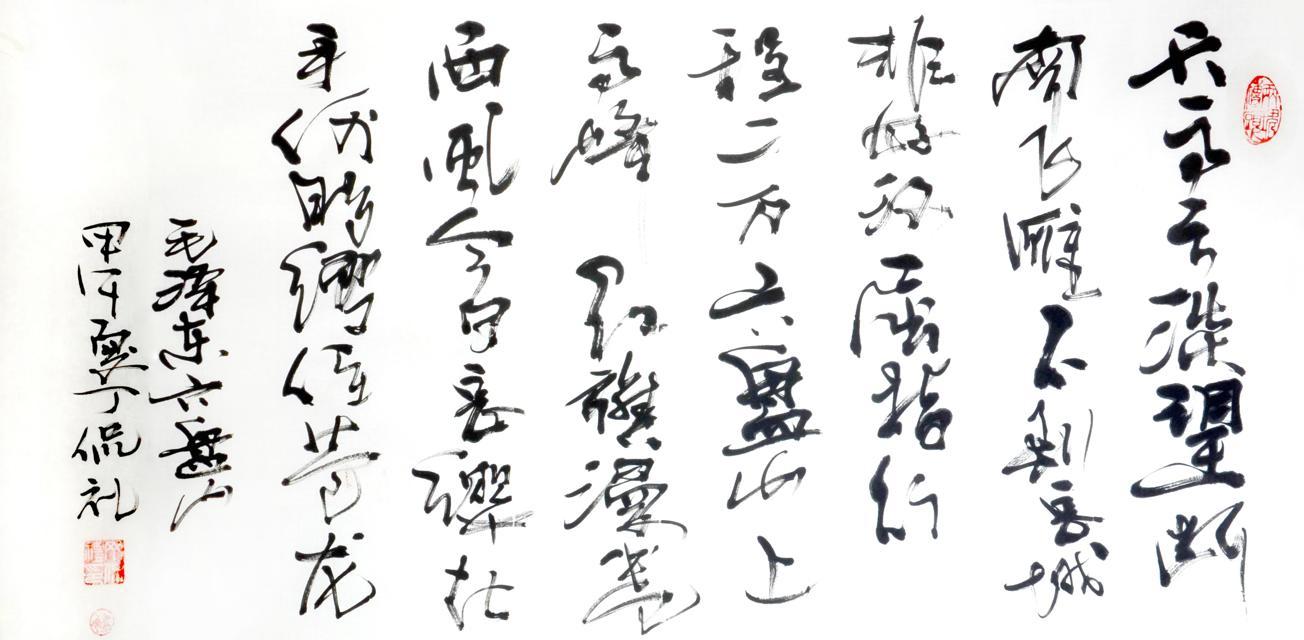 天高云淡望断
南飞雁不到長城
非好汉屈指行
程二万六盤山上
高峰红旗漫卷
西風今日長纓在
手何时缚住苍龙
毛澤东六盘山
甲午夏丁侃礼